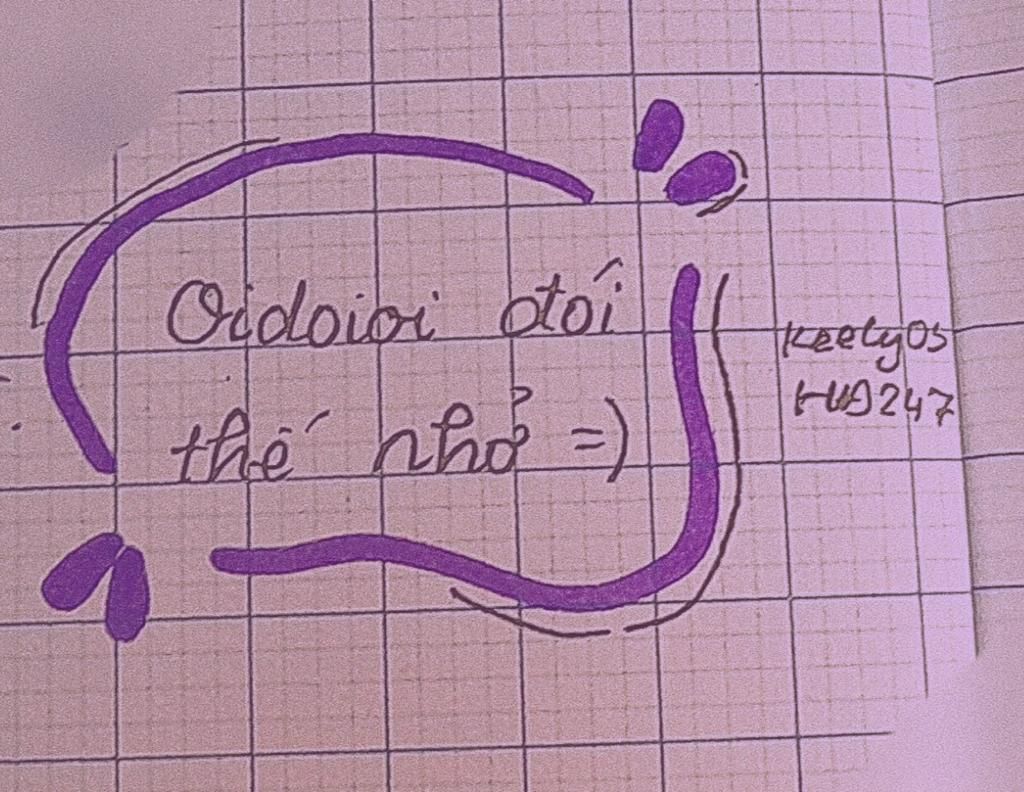 Oidoioi đói
thế nhở =)
Keely05
HUĐ247